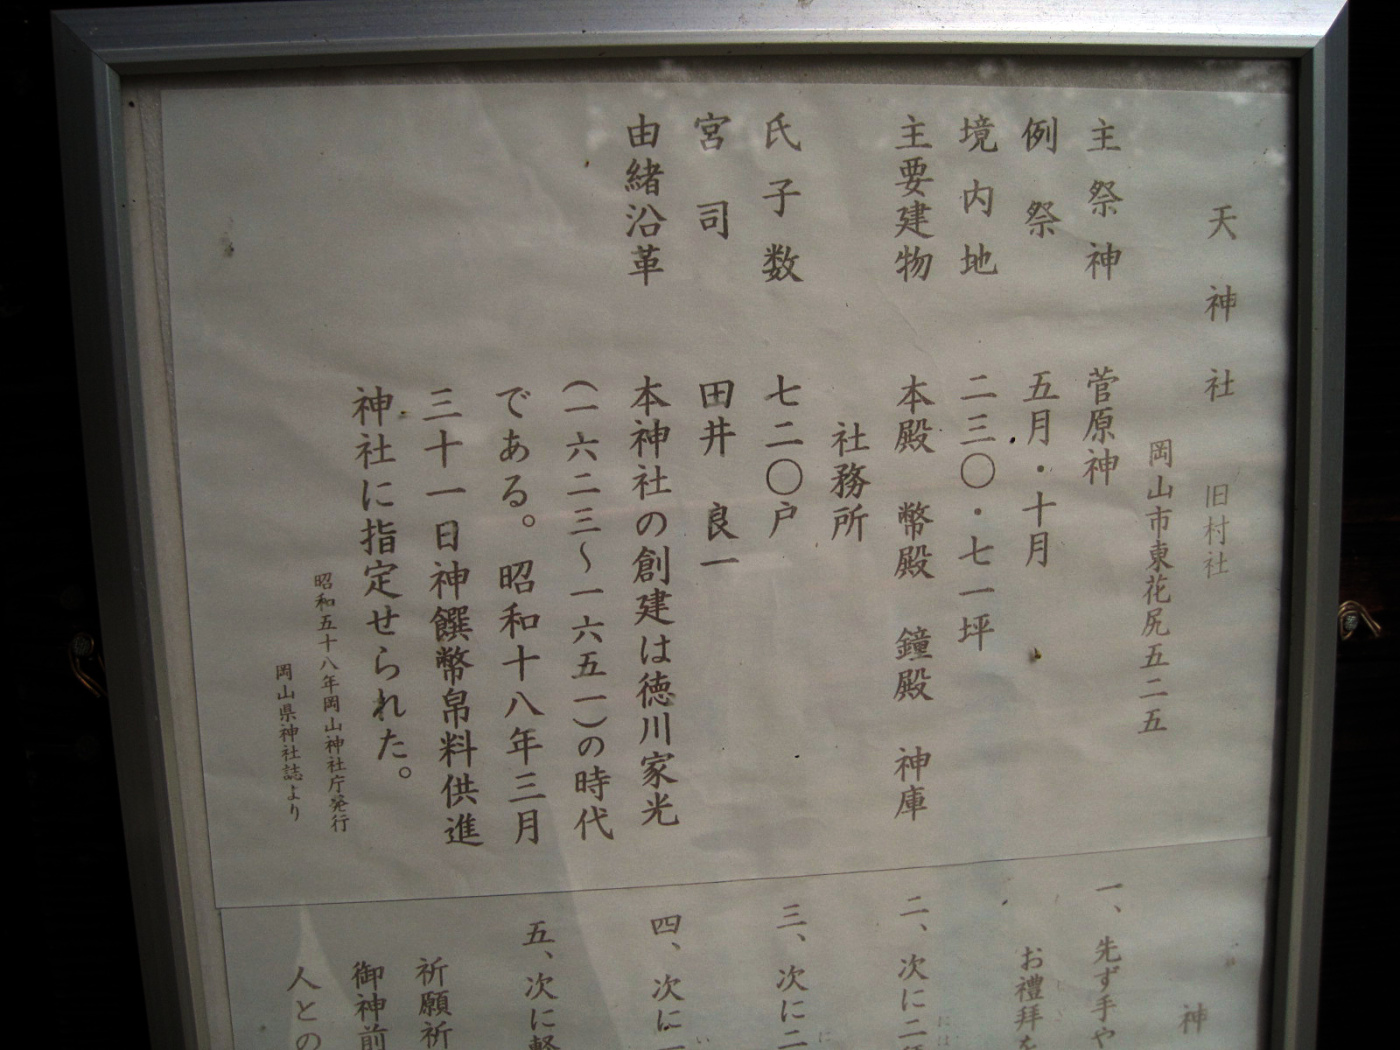 天神社 旧村社
岡山市東花尻五二五
主祭神 菅原神
例祭 五月・十月
境内地 二三〇・七一坪
主要建物 本殿 幣殿 鐘殿 神庫
社務所
氏子数 七二〇戸
宮司 田井 良一
由緒沿革 本神社の創建は徳川家光
(一六二三〜一六五一)の時代
である。昭和十八年三月
三十一日神饌幣帛料供進
神社に指定せられた。
昭和五十八年岡山神社庁発行
岡山県神社誌より
神
一、先ず手や
お禮拜を
二、次に二
三、次に二
四、次に一
五、次に軽
祈願祈
御神前
人との